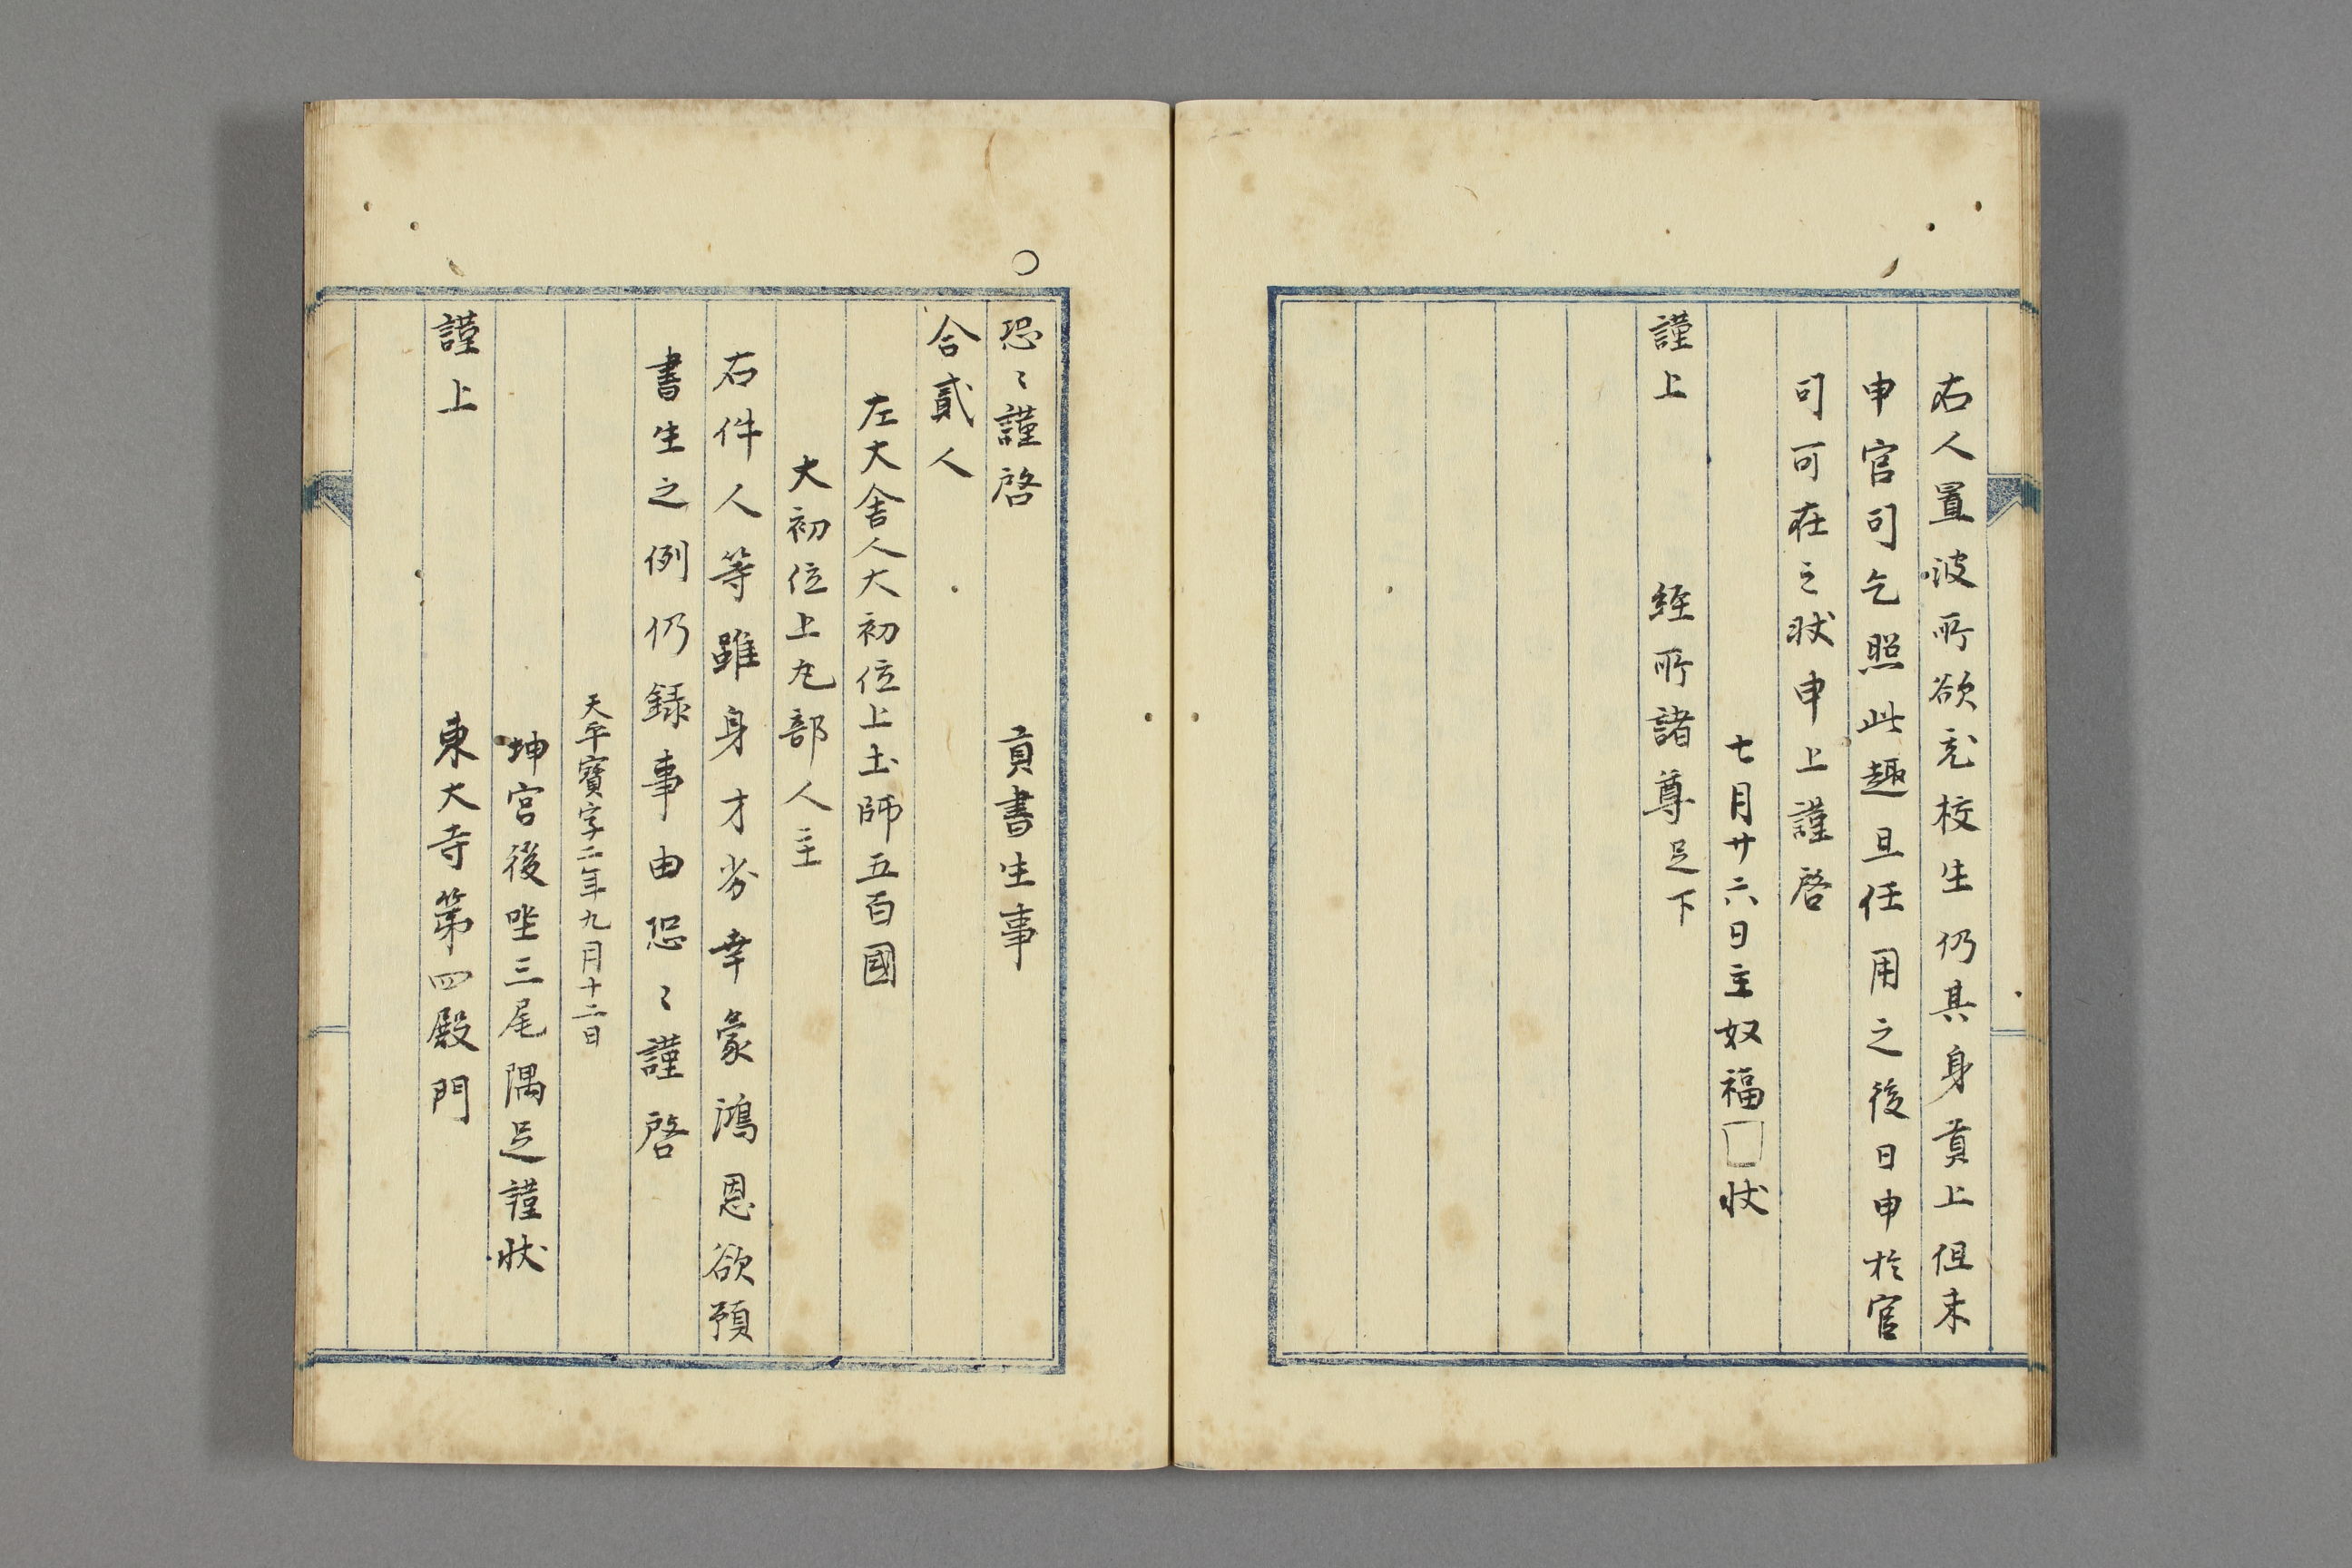 右人置彼所欲充校生仍其身貢上但未
申官司乞照此趣且任用之後日申於官
司可在之状申上謹啓
七月廿六日主奴福□状
謹上 経所諸尊足下
○
恐〻謹啓 貢書生事
合貳人
左大舎人大初位上土師五百國
大初位上丸部人主
右件人等雖身才劣幸蒙鴻恩欲預
書生之例仍録事由恐〻謹啓
天平寶字二年九月十二日
坤宮後坐三尾隅足謹状
謹上 東大寺第四殿門